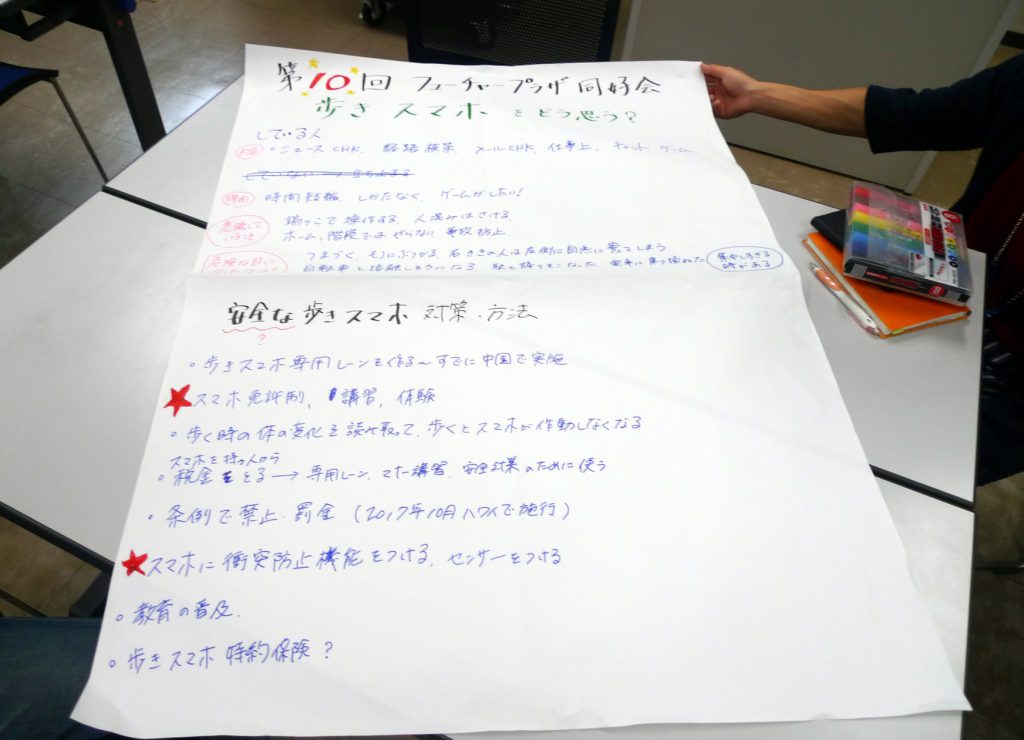 第10回 フューチャープラザ 同好会
歩きスマホをどう思う?
している人
内容 ・ニュースCHK, 経路検索, メールCHK, 仕事上, チャット, ゲーム
理由 時間短縮 しかたなく, ゲームがしたい!
意識していること 端っこで操作する, 人混みはさける,
ホーム, 階段ではやらない 事故防止
危険な目に
つまづく, モノにぶつかる, 右ききの人は左側に自然に寄ってしまう
自転車と接触しそうになる
集中しすぎる時がある
安全な歩きスマホ 対策・方法
?
・歩きスマホ専用レーンを作る〜すでに中国で実施
★スマホ免許制, 講習, 体験
・歩く時の体の変化を読み取って, 歩くとスマホが作動しなくなる
スマホを持つ人から
・税金をとる→専用レーン, マナー講習, 安全対策のために使う
・条例で禁止・罰金(2017年10月ハワイで施行)
★スマホに衝突防止機能をつける, センサーをつける
・教育の普及.
・歩きスマホ特約保険?